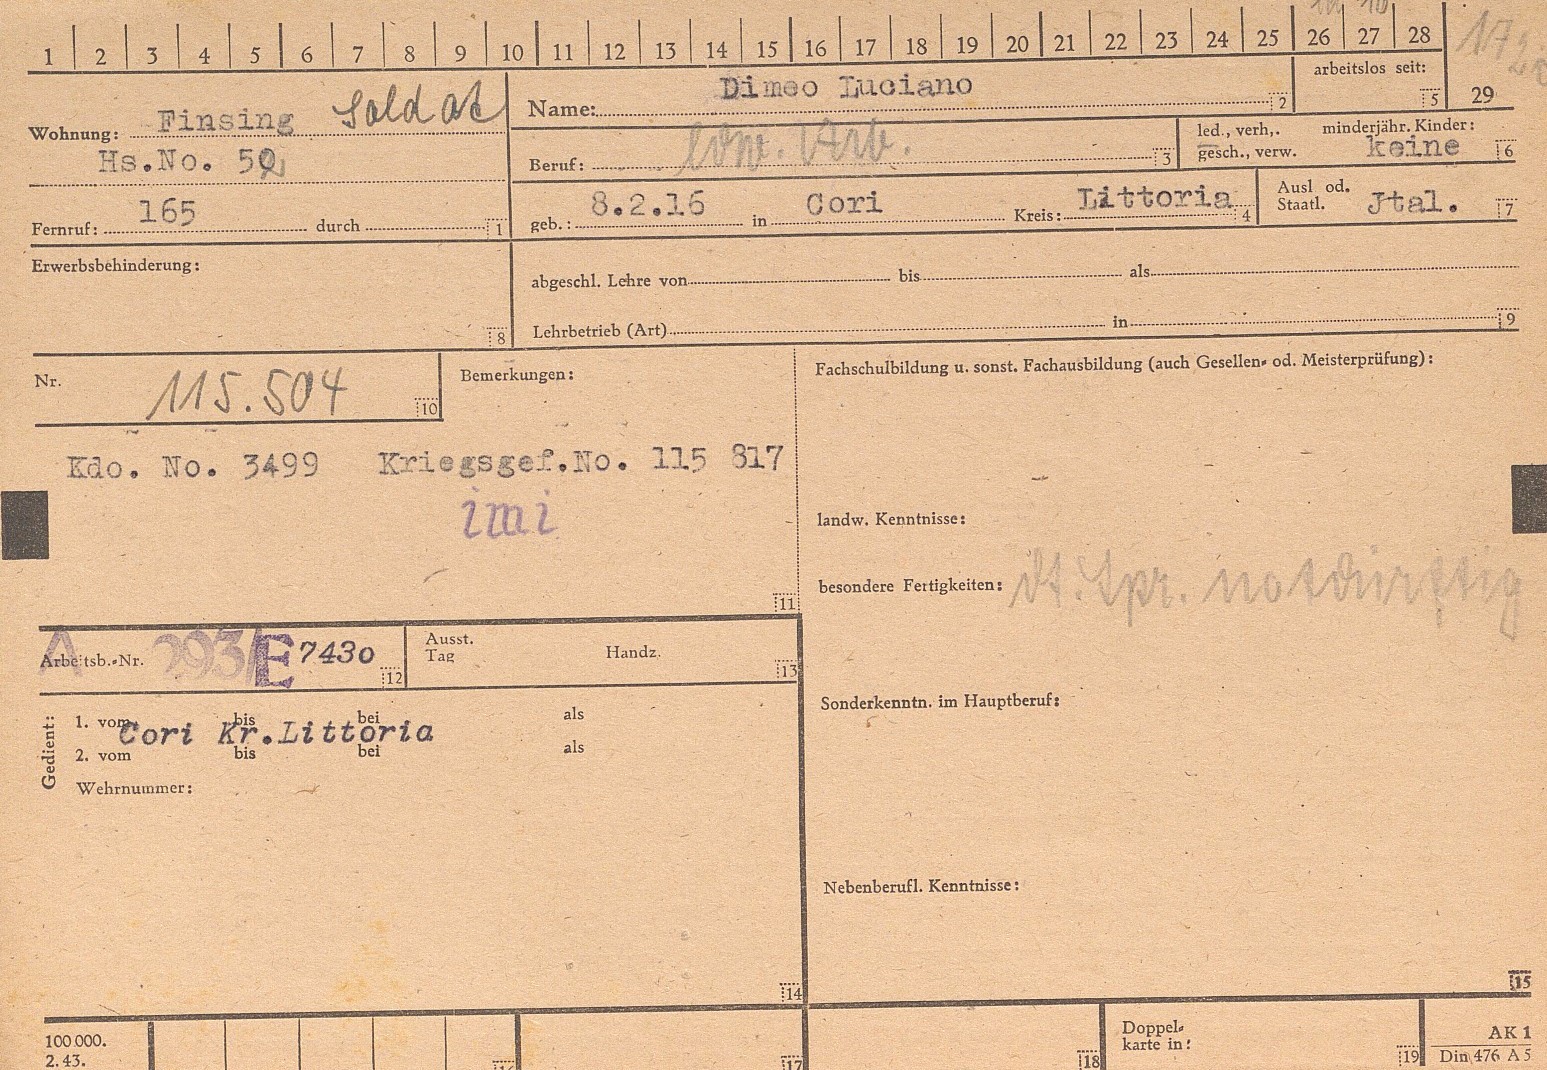 1 2 3 4 5 6 7 8 9 10 11 12 13 14 15 16 17 18 19 20 21 22 23 24 25 26 27 28
29
Wohnung: Finsing Soldat
Hs.No. 52
Fernruf: 165 durch 1
Name: Dimeo Luciano 2
arbeitslos seit: 5
Beruf: ldw. Arb. 3
led., verh,. minderjähr. Kinder:
gesch., verw. keine 6
geb.: 8.2.16 in Cori Kreis: Littoria 4
Ausl od.
Staatl. Jtal. 7
Erwerbsbehinderung:
8
abgeschl. Lehre von bis als
Lehrbetrieb (Art) in 9
Nr. 115.504 10
Bemerkungen:
Kdo. No. 3499 Kriegsgef.No. 115 817
imi
11
Fachschulbildung u. sonst. Fachausbildung (auch Gesellen- od. Meisterprüfung):
landw. Kenntnisse:
besondere Fertigkeiten: dt. Spr. notdürftig
Sonderkenntn. im Hauptberuf:
Nebenberufl. Kenntnisse:
15
A 293/E 7430
Arbeitsb.-Nr. 12
Ausst.
Tag Handz. 13
Gedient:
1. vom bis bei als
Cori Kr.Littoria
2. vom bis bei als
Wehrnummer:
14
100 000.
2. 43.
16 17 18
Doppel-
karte in: 19
AK 1
Din 476 A 5